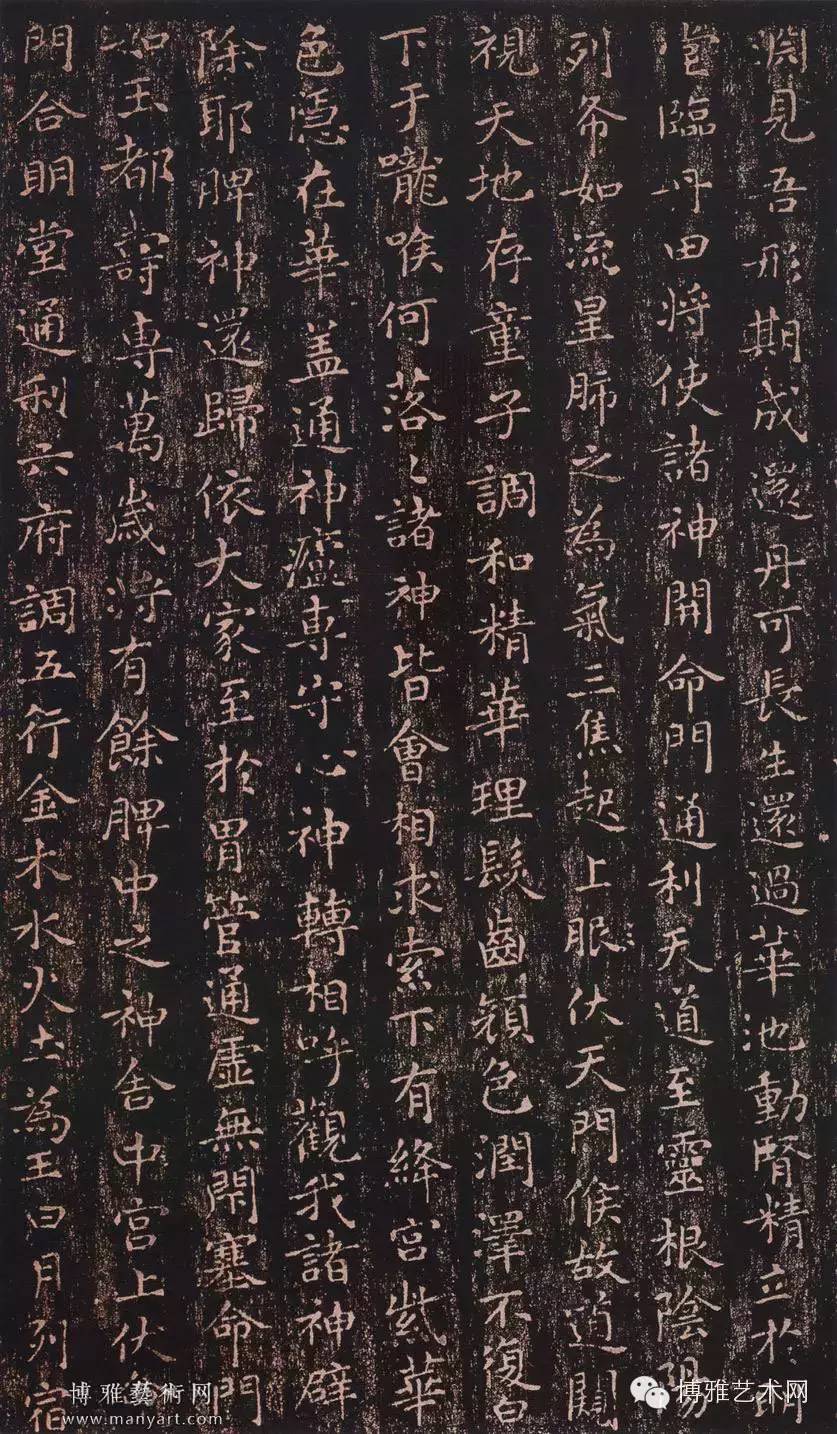 淵見吾形期成還丹可長生還過華池動腎精立於明
堂臨丹田將使諸神開命門通利天道至靈根陰陽
列布如流星肺之為氣三焦起上服伏天門候故道闚
視天地存童子調和精華理髮齒顏色潤澤不復白
下于嚨喉何落〻諸神皆會相求索下有絳宮紫華
色隱在華盖通神廬專守心神轉相呼觀我諸神辟
除耶脾神還歸依大家至於胃管通虛無閉塞命門
如玉都壽專萬歲將有餘脾中之神舍中宮上伏命
門合明堂通利六府調五行金木水火土為王日月列宿
博雅藝術网
www.manyart.com
博雅艺术网